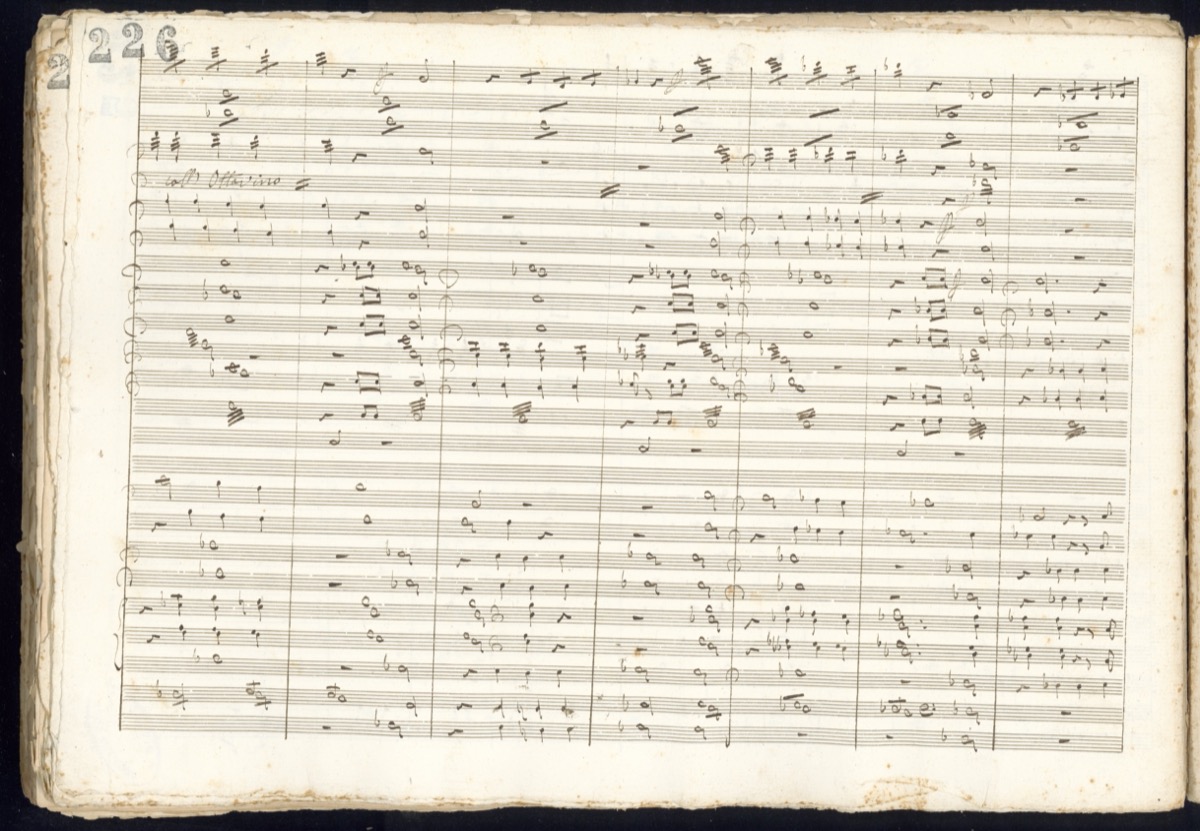 226
2
coll' Ottavino